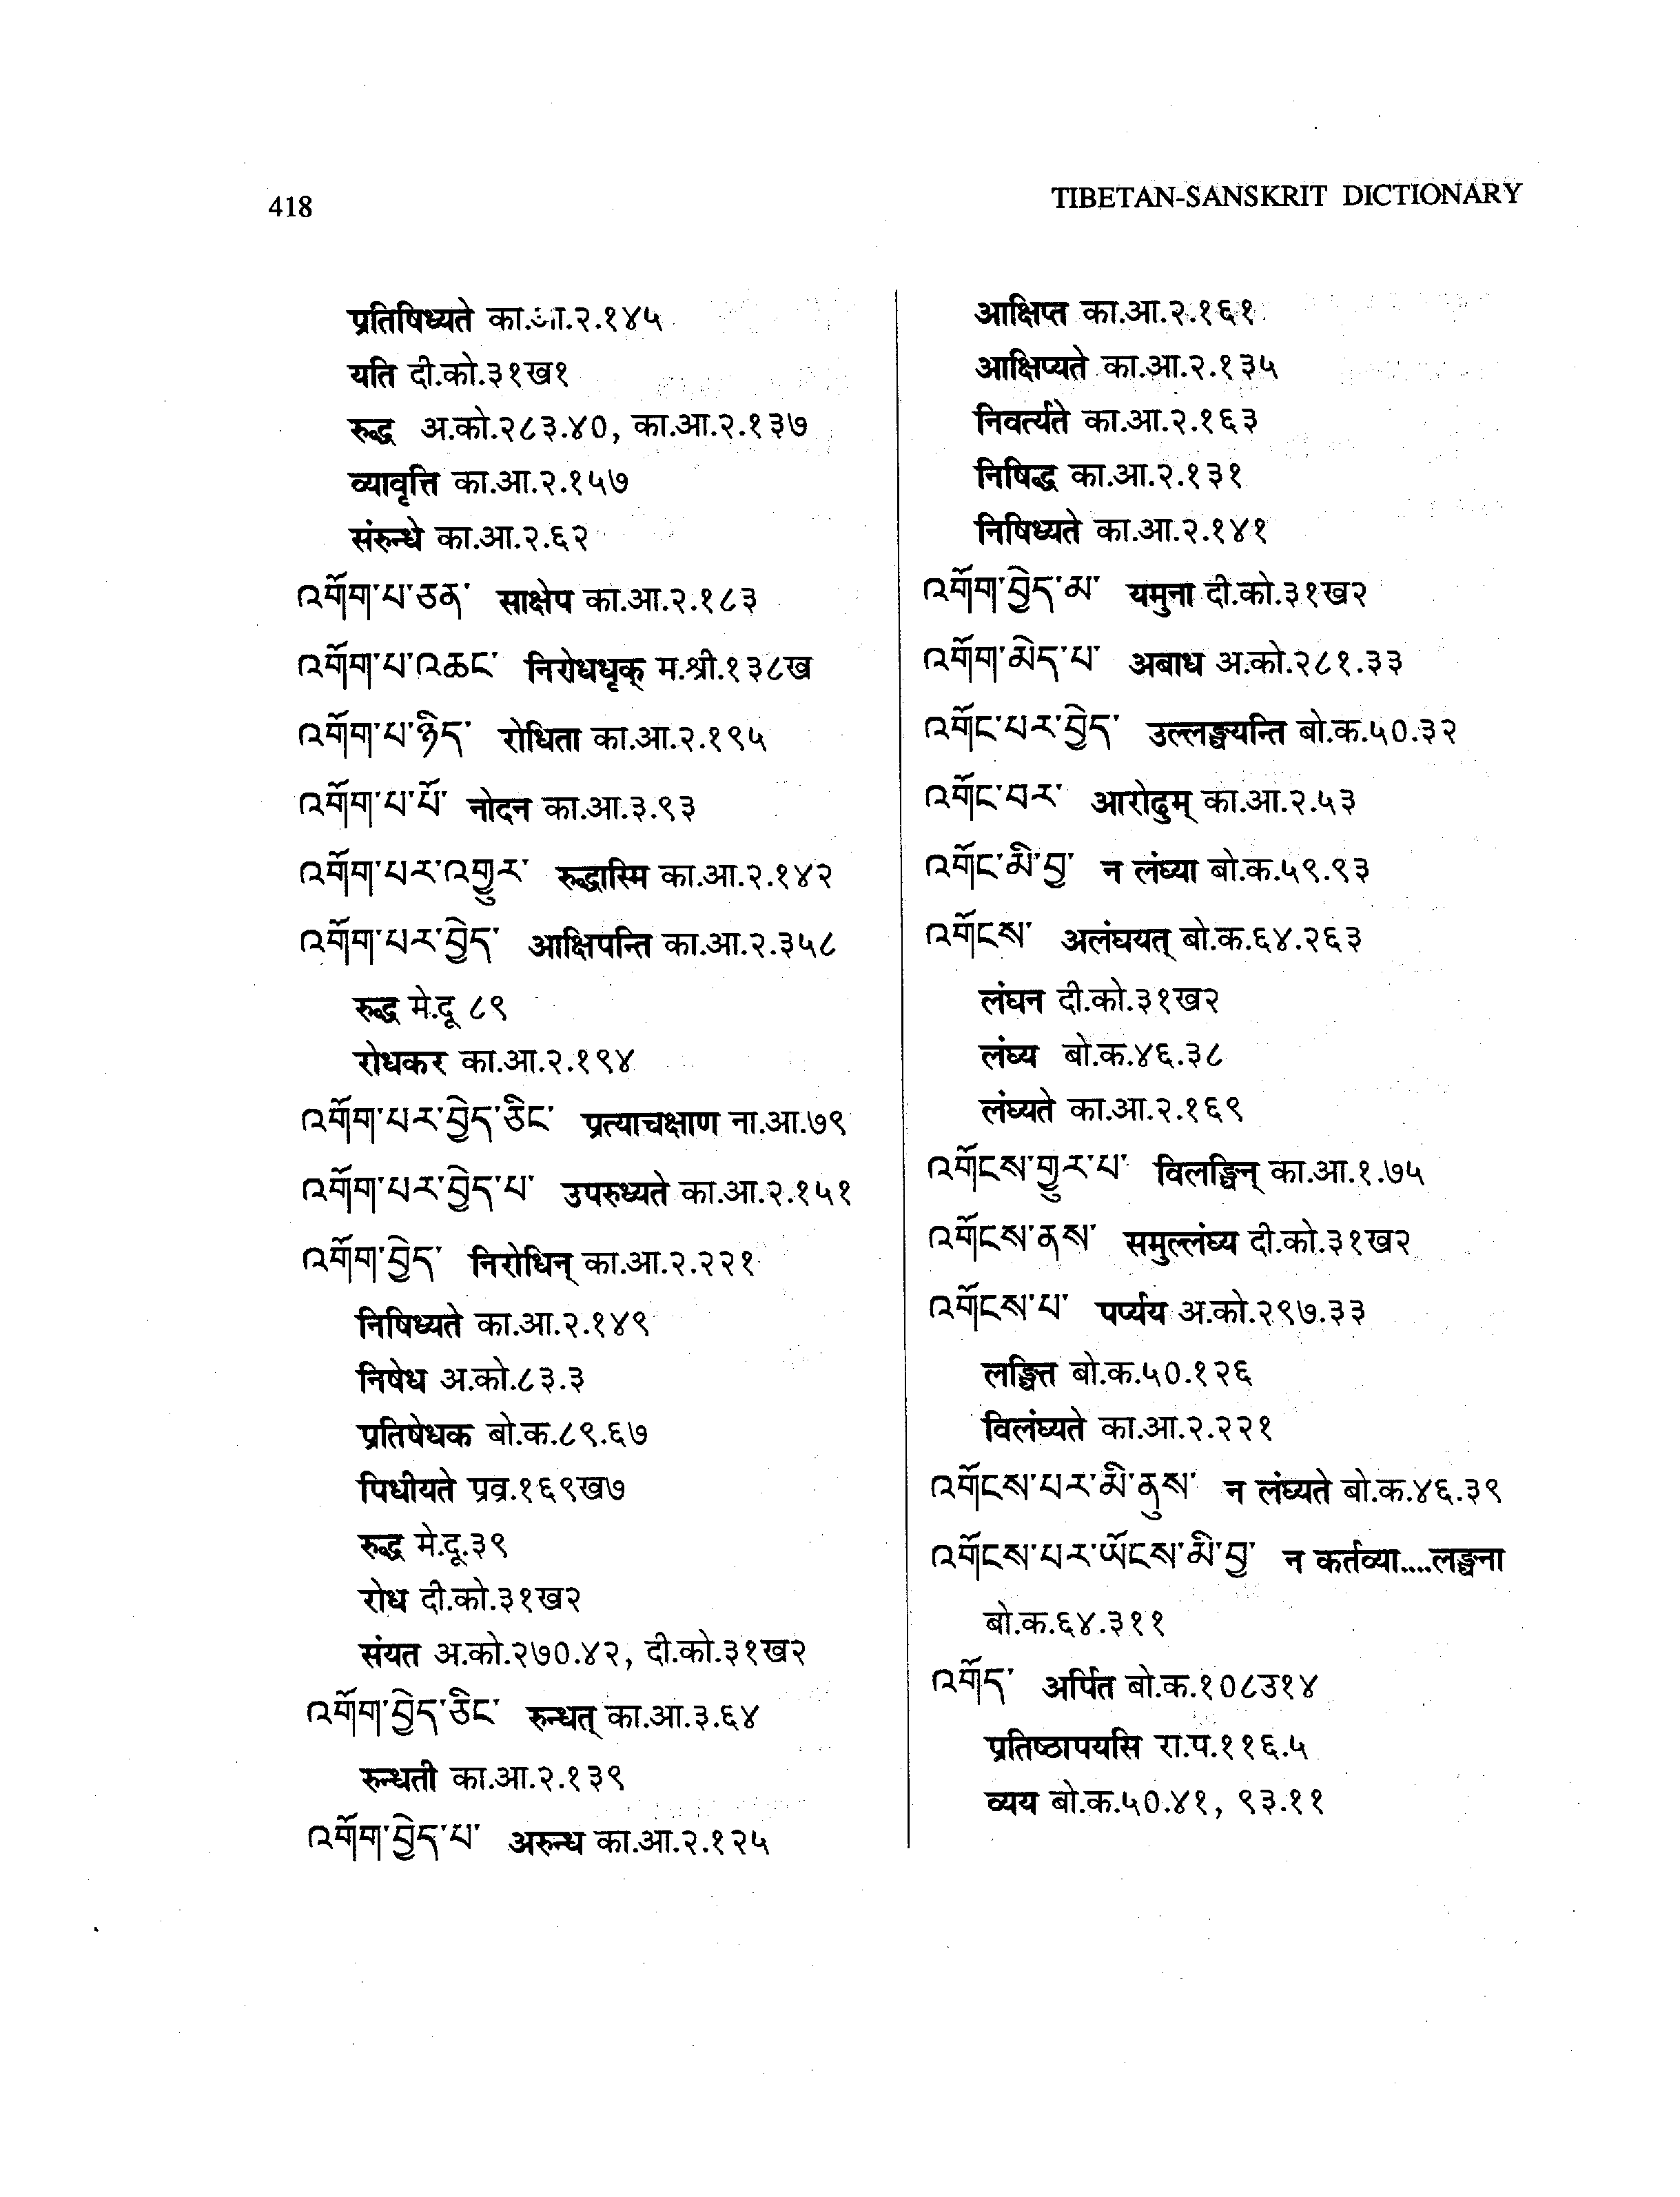 418
TIBETAN-SANSKRIT DICTIONARY
प्रतिषिध्यते का.आ.२.१४५
यति दी.को.३१ख१
रुद्ध अ.को.२८३.४०, का.आ.२.१३७
व्यावृत्ति का.आ.२.१५७
संरुन्धे का.आ.२.६२
འགོག་པ་ཅན་ साक्षेप का.आ.२.१८३
འགོག་པ་འཆང་ निरोधधृक् म.श्री.१३८ख
འགོག་པ་ཉིད་ रोधिता का.आ.२.१९५
འགོག་པ་པོ་ नोदन का.आ.३.९३
འགོག་པར་འགྱུར་ रुद्धास्मि का.आ.२.१४२
འགོག་པར་བྱེད་ आक्षिपन्ति का.आ.२.३५८
रुद्ध मे.दू ८९
रोधकर का.आ.२.१९४
འགོག་པར་བྱེད་ཅིང་ प्रत्याचक्षाण ना.आ.७९
འགོག་པར་བྱེད་པ་ उपरुध्यते का.आ.२.१५१
འགོག་བྱེད་ निरोधिन् का.आ.२.२२१
निषिध्यते का.आ.२.१४९
निषेध अ.को.८३.३
प्रतिषेधक बो.क.८९.६७
पिधीयते प्रव्र.१६९ख७
रुद्ध मे.दू.३९
रोध दी.को.३१ख२
संयत अ.को.२७०.४२, दी.को.३१ख२
འགོག་བྱེད་ཅིང་ रुन्धत् का.आ.३.६४
रुन्धती का.आ.२.१३९
འགོག་བྱེད་པ་ अरुन्ध का.आ.२.१२५
आक्षिप्त का.आ.२.१६१
आक्षिप्यते का.आ.२.१३५
निवर्त्यते का.आ.२.१६३
निषिद्ध का.आ.२.१३१
निषिध्यते का.आ.२.१४१
འགོག་བྱེད་མ་ यमुना दी.को.३१ख२
འགོག་མེད་པ་ अबाध अ.को.२८१.३३
འགོང་པར་བྱེད་ उल्लङ्घयन्ति बो.क.५०.३२
འགོང་བར་ आरोढुम् का.आ.२.५३
འགོང་མི་བྱ་ न लंघ्या बो.क.५९.९३
འགོངས་ अलंघयत् बो.क.६४.२६३
लंघन दी.को.३१ख२
लंघ्य बो.क.४६.३८
लंघ्यते का.आ.२.१६९
འགོངས་གྱུར་པ་ विलङ्घिन् का.आ.१.७५
འགོངས་ནས་ समुल्लंघ्य दी.को.३१ख२
འགོངས་པ་ पर्य्यय अ.को.२९७.३३
लङ्घित बो.क.५०.१२६
विलंघ्यते का.आ.२.२२१
འགོངས་པར་མི་ནུས་ न लंघ्यते बो.क.४६.३९
འགོངས་པར་ཡོངས་མི་བྱ་ न कर्तव्या....लङ्घना
बो.क.६४.३११
འགོད་ अर्पित बो.क.१०८उ१४
प्रतिष्ठापयसि रा.प.११६.५
व्यय बो.क.५०.४१, ९३.११